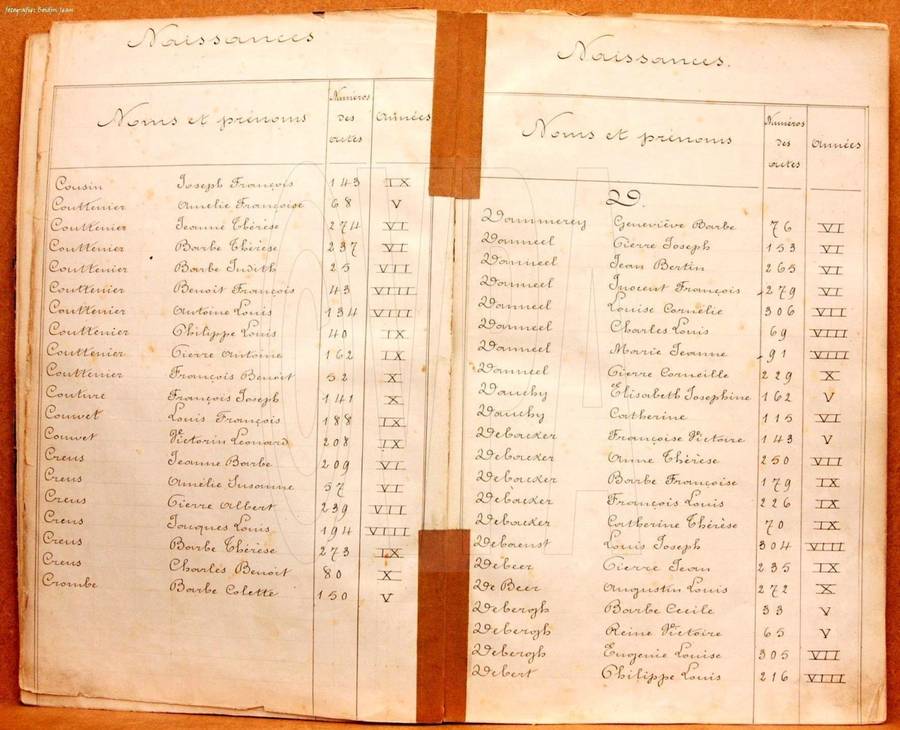 fotografie: Beidjn Jean
Naissances
Noms et prénoms Numéros des actes Années
Cousin Joseph François 143 IX
Couttenier Amélie Françoise 68 V
Couttenier Jeanne Thérèse 274 VI
Couttenier Barbe Thérèse 237 VI
Couttenier Barbe Judith 25 VII
Couttenier Benoit François 43 VIII
Couttenier Antoine Louis 134 VIII
Couttenier Philippe Louis 40 IX
Couttenier Pierre Antoine 162 IX
Couttenier François Benoit 52 X
Couture François Joseph 141 X
Couvet Louis François 188 IX
Couvet Victorin Leonard 208 IX
Creus Jeanne Barbe 209 VI
Creus Amélie Susanne 57 VI
Creus Pierre Albert 239 VII
Creus Jacques Louis 194 VIII
Creus Barbe Thérèse 273 IX
Creus Charles Benoit 80 X
Crombe Barbe Colette 150 V
Naissances.
Noms et prénoms Numéros des actes Années
D.
Dammerey Geneviève Barbe 76 VI
Danneel Pierre Joseph 153 VI
Danneel Jean Bertin 265 VI
Danneel Inocent François 279 VI
Danneel Louise Cornélie 306 VII
Danneel Charles Louis 69 VIII
Danneel Marie Jeanne 91 VIII
Danneel Pierre Corneille 229 X
Dauchy Elisabeth Josephine 162 V
Dauchy Catherine 115 VI
Debacker Françoise Victoire 143 V
Debacker Anne Thérèse 250 VII
Debacker Barbe Françoise 179 IX
Debacker François Louis 226 IX
Debacker Catherine Thérèse 70 IX
Debaenst Louis Joseph 304 VIII
Debeer Pierre Jean 235 IX
De Beer Augustin Louis 272 X
Debergh Barbe Cecile 33 V
Debergh Reine Victoire 65 V
Debergh Eugenie Louise 305 VII
Debert Philippe Louis 216 VIII